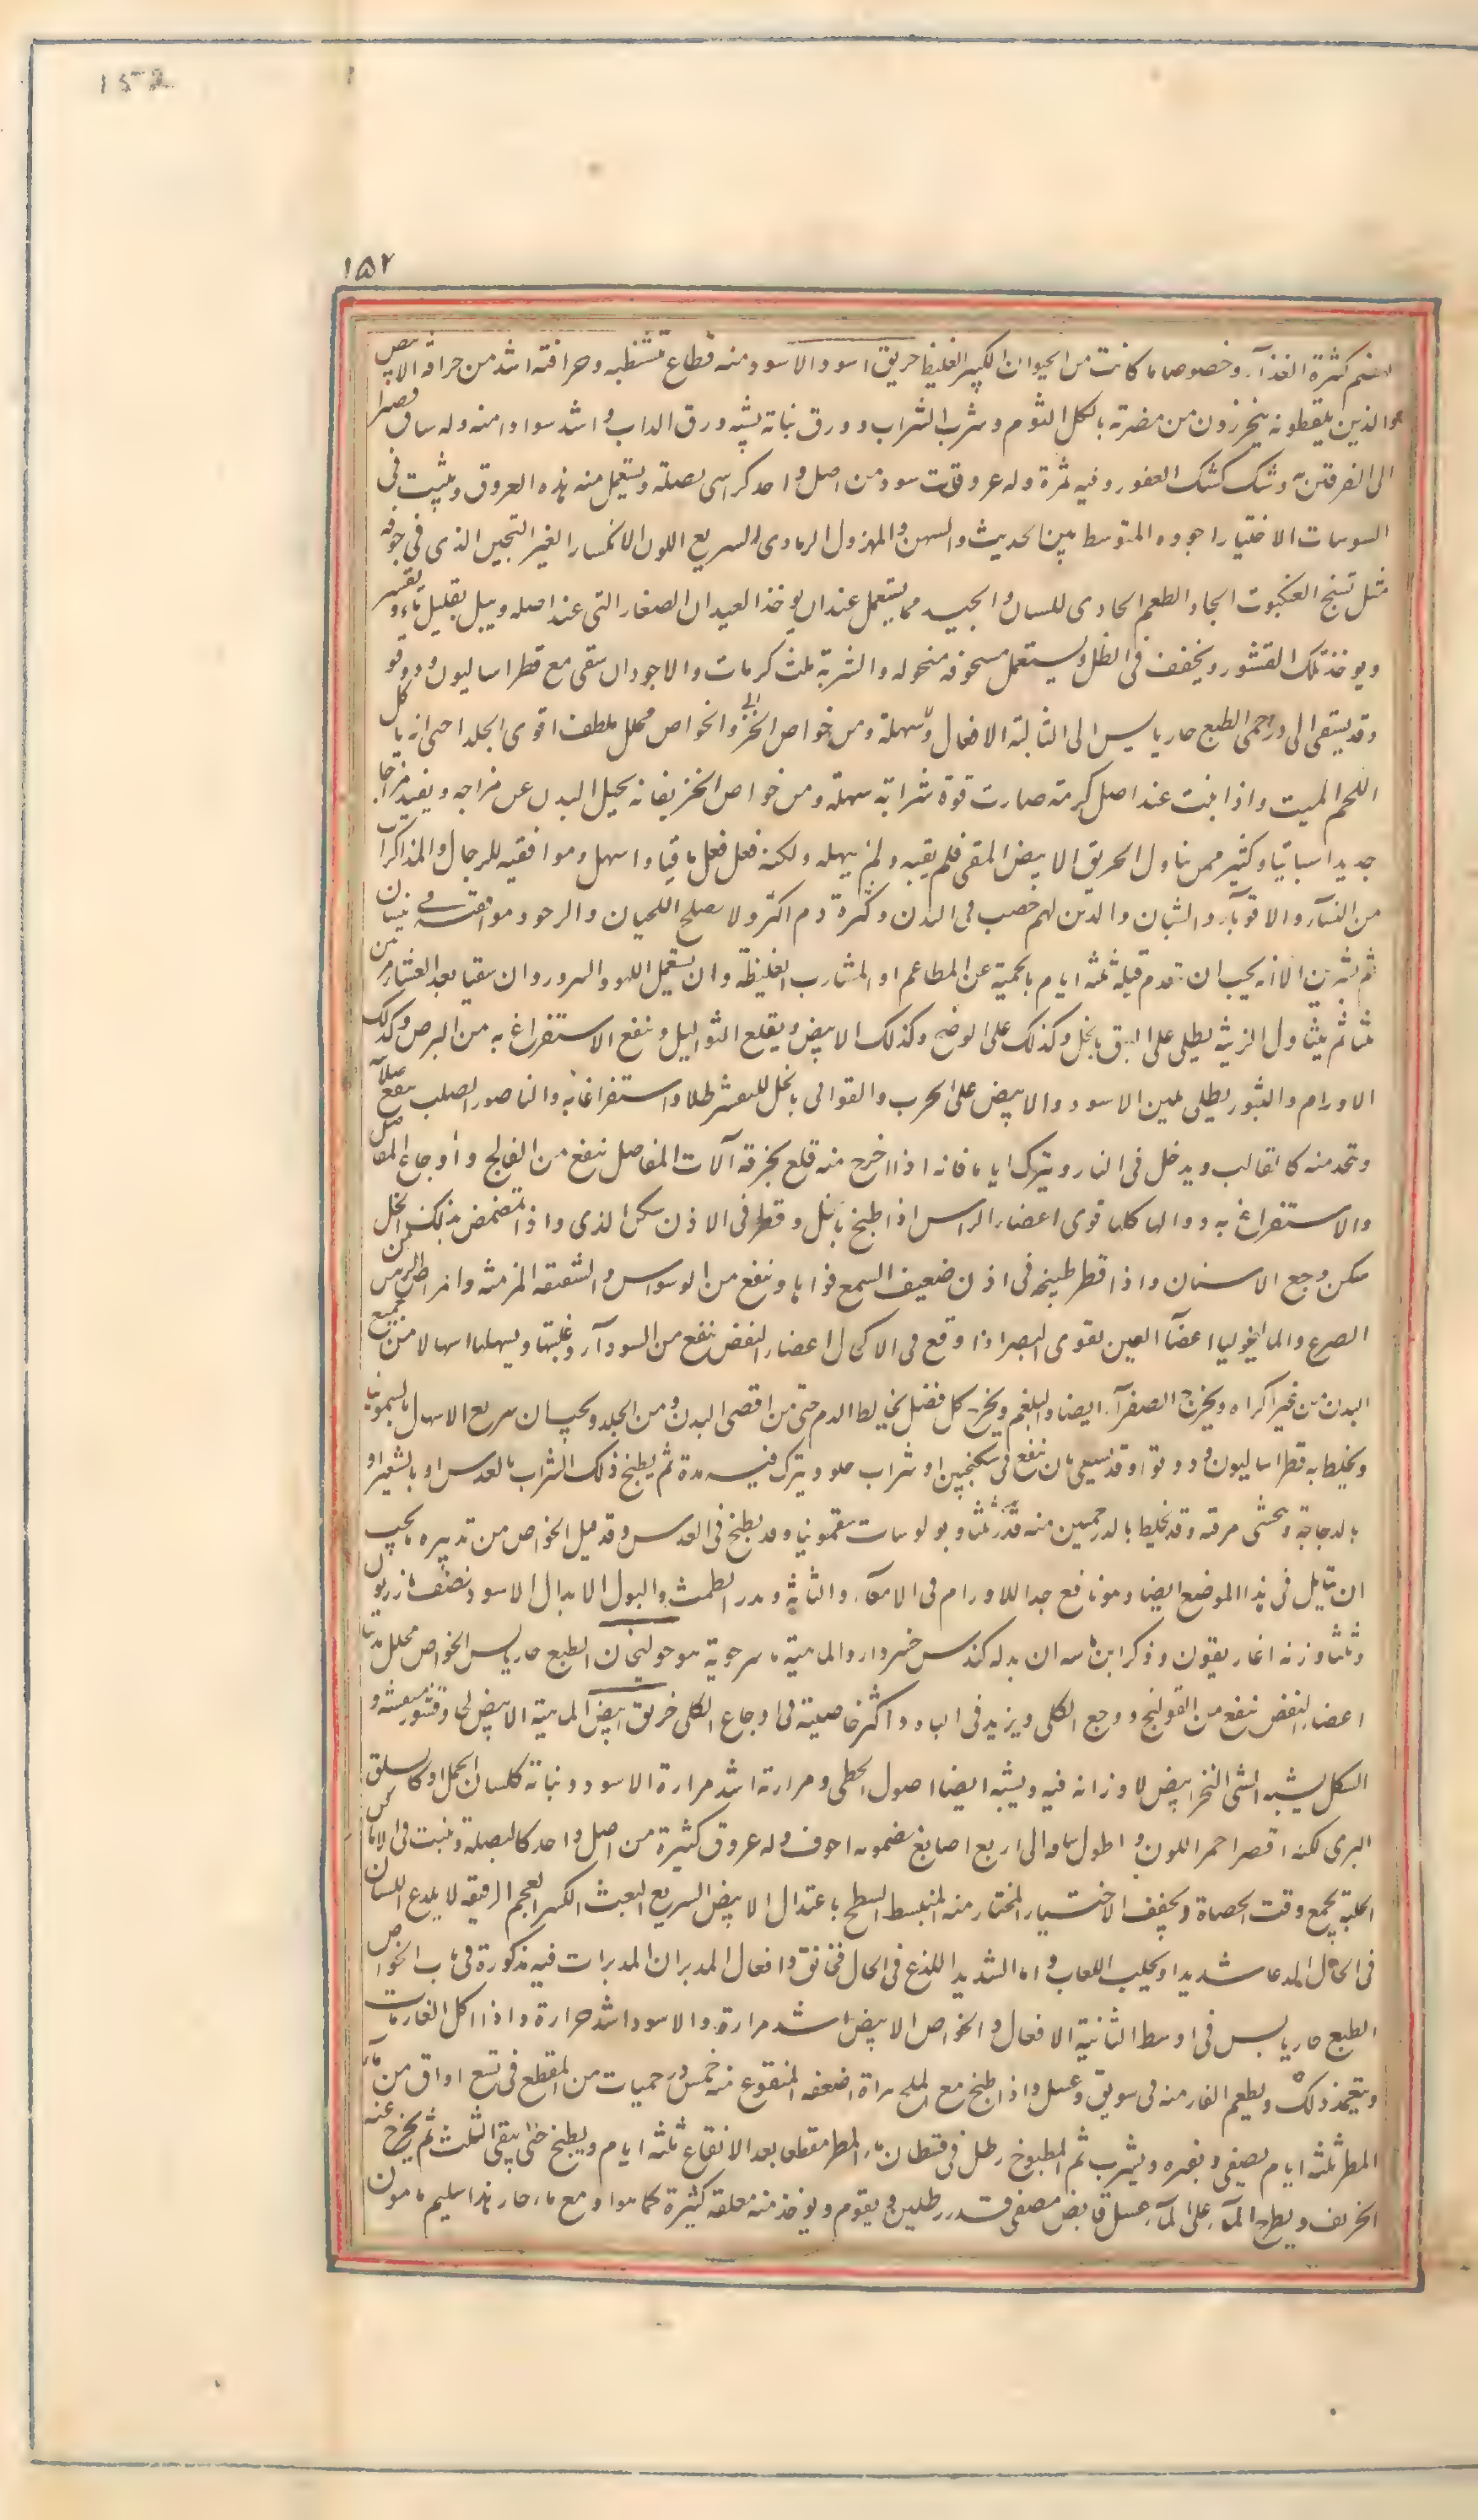 152
۱۵۲
الهضم كثيرة الغذاء وخصوصا ما كانت من الحيوان الكبير الغليظ خربق اسود الاسود منه قطاع متشظيه وحرافته اشد من حرافة الابيض
والذين يلقطونه يتحرزون من مضرته باكل الثوم وشرب الشراب وورق نباته يشبه ورق الداب واشد سوادا منه وله ساق قصير
الى الفرفيرية وشك كشك العصفور وفيه ثمرة وله عروق سود من اصل واحد كراسى بصلة ويستعمل منه هذه العروق وينبت فى
السوسات الاختيار اجوده المتوسط بين الحديث والسمين والمهزول الرمادى اللون السريع الانكسار الغير التجبن الذى فى جوفه
مثل نسج العنكبوت الحاد الطعم الحادى للسان والجيد مما يستعمل عند ان يوخذ العيدان الصغار التى عند اصله ويبل بقليل ماء وتقشر
ويوخذ تلك القشور ويجفف فى الظل ويستعمل مسحوقه منخوله والشربة ثلث كرمات والاجود ان يسقى مع قطراساليون ودوقو
وقد يسقى الى درخمى الطبع حار يابس الى الثالثة الافعال ومن خواص الخربق والخواص محلل ملطف اقوى الجلد حتى انه ياكل
اللحم الميت واذا نبت عند اصل كرمة صارت قوة شرابه مسهلة ومن خواص الخربق انه يحيل البدن عن مزاجه ويفيد مزاجا
جديدا سباتيا وكثير ممن تناول الخربق الابيض المقى فلم يقيه ولم يسهله ولكنه فعل فعل ما قيا واسهل وموافقته للرجال والمذاكرات
من النساء والاقوياء والشبان والذين لهم خصب فى البدن وكثرة دم اكثر ولا يصلح اللحيان والرخو وموافقته فى نيسان
ثم تشرين الا انه يجب ان يقدم قبله ثلثه ايام بالحمية عن المطاعم او المشارب الغليظة وان يستعمل اللهو والسرور وان يتقيا بعد العشا من
ثلثا ثم يتناول الزينة يطلى على البهق بالخل وكذلك على الوضح وكذلك الابيض ويقلع الثواليل وينفع الاستفراغ به من البرص وكذلك
الاورام والبثور يطلى لمين الاسود والابيض على الجرب والقوابى بالخل للتقشر طلاء واستفراغا به والناصور الصلب ينفع
ويتخذ منه كالقالب ويدخل فى الناسور ويترك اياما فانه اذا اخرج منه قلع بحرقه آلات المفاصل ينفع من الفالج واوجاع المفاصل
والاستفراغ به ودوالها كلها قوى اعضاء الراس اذا طبخ بالخل وقطر فى الاذن سكن الدوى واذا تمضمض بذلك الخل
سكن وجع الاسنان واذا قطر طبيخه فى اذن ضعيف السمع قواها وينفع من الوسواس والشقيقة المزمنة وامراض الراس من
الصرع والماليخوليا اعضاء العين يقوى البصر اذا وقع فى الاكحال اعضاء النفض ينفع من السوداء وغلبتها ويسهلها اسهالا من جميع
البدن من غير اكراه ويخرج الصفراء ايضا والبلغم ويخرج كل فضل يخالط الدم حتى من اقصى البدن ومن الجلد ويجب ان سريع الاسهال بالسقمونيا
ويخلط به قطراساليون ودوقو وقد يسعى بان ينقع فى سكنجبين او شراب حلو ويترك فيه مدة ثم يطبخ ذلك الشراب بالعدس او بالشعير او
بالدجاجة ويتحسى مرقه وقد يخلط بالدرخمين منه قدر ثلثا وبولوسات سقمونيا وقد يطبخ فى العدس وقد قيل الخواص من تدبيره ما يجب
ان يتامل فى هذا الموضع ايضا وهو نافع جدا للاورام فى الامعاء والمثانة ومدر الطمث والبول الابدال الاسود نصفه مازريون
وثلثا وزنه اغاريقون وذكر ابن ماسه ان بدله كندس خسرودارو الماهية ماسرجويه هو خولنجان الطبع حار يابس الخواص محلل
اعضاء النفض ينفع من القولنج ووجع الكلى ويزيد فى الباه واكثر خاصيته فى اوجاع الكلى خربق ابيض الماهية الابيض لحا وقشور
الشكل يشبه الشى النخر ابيض لا وزانة فيه ويشبه ايضا اصول الخطمى ومرارته اشد مرارة الاسود ونباته كلسان الحمل او كالسلق
البرى لكنه اقصر احمر اللون واطول ساقه الى اربع اصابع مضمومه اجوف وله عروق كثيرة من اصل واحد كالبصلة وينبت فى الاماكن
الجبلية يجمع وقت الحصاد ويجفف الاختيار المختار منه المنبسط السطح باعتدال الابيض السريع التفتت الكبير الحجم الرقيق لا يلدع اللسان
فى الحال لدعا شديدا ويجلب اللعاب واما الشديد اللذع فى الحال فخانق وافعال المدبران المدبرات فيه مذكورة فى باب الخواص
الطبع حار يابس فى اوسط الثانية الافعال والخواص الابيض اشد مرارة والاسود اشد حرارة واذا اكل الفار مات
ويتخذ ذلك ويطعم الفار منه فى سويق وعسل واذا طبخ مع اللحم هراه اضعفه المنقوع منه خمس درخميات من المقطع فى تسع اواق من ماء
المطر ثلثه ايام يصفى ويفتر ويشرب ثم المطبوخ رطل فى قسطان ماء المطر مقطعا بعد الانقاع ثلثه ايام ويطبخ حتى يبقى الثلث ثم يخرج عنه
الخربق ويطرح الماء على الماء عسل فايض مصفى قدر رطلين ويقوم ويوخذ منه ملعقة كثيرة كما هو او مع ماء حار هذا سليم مامون